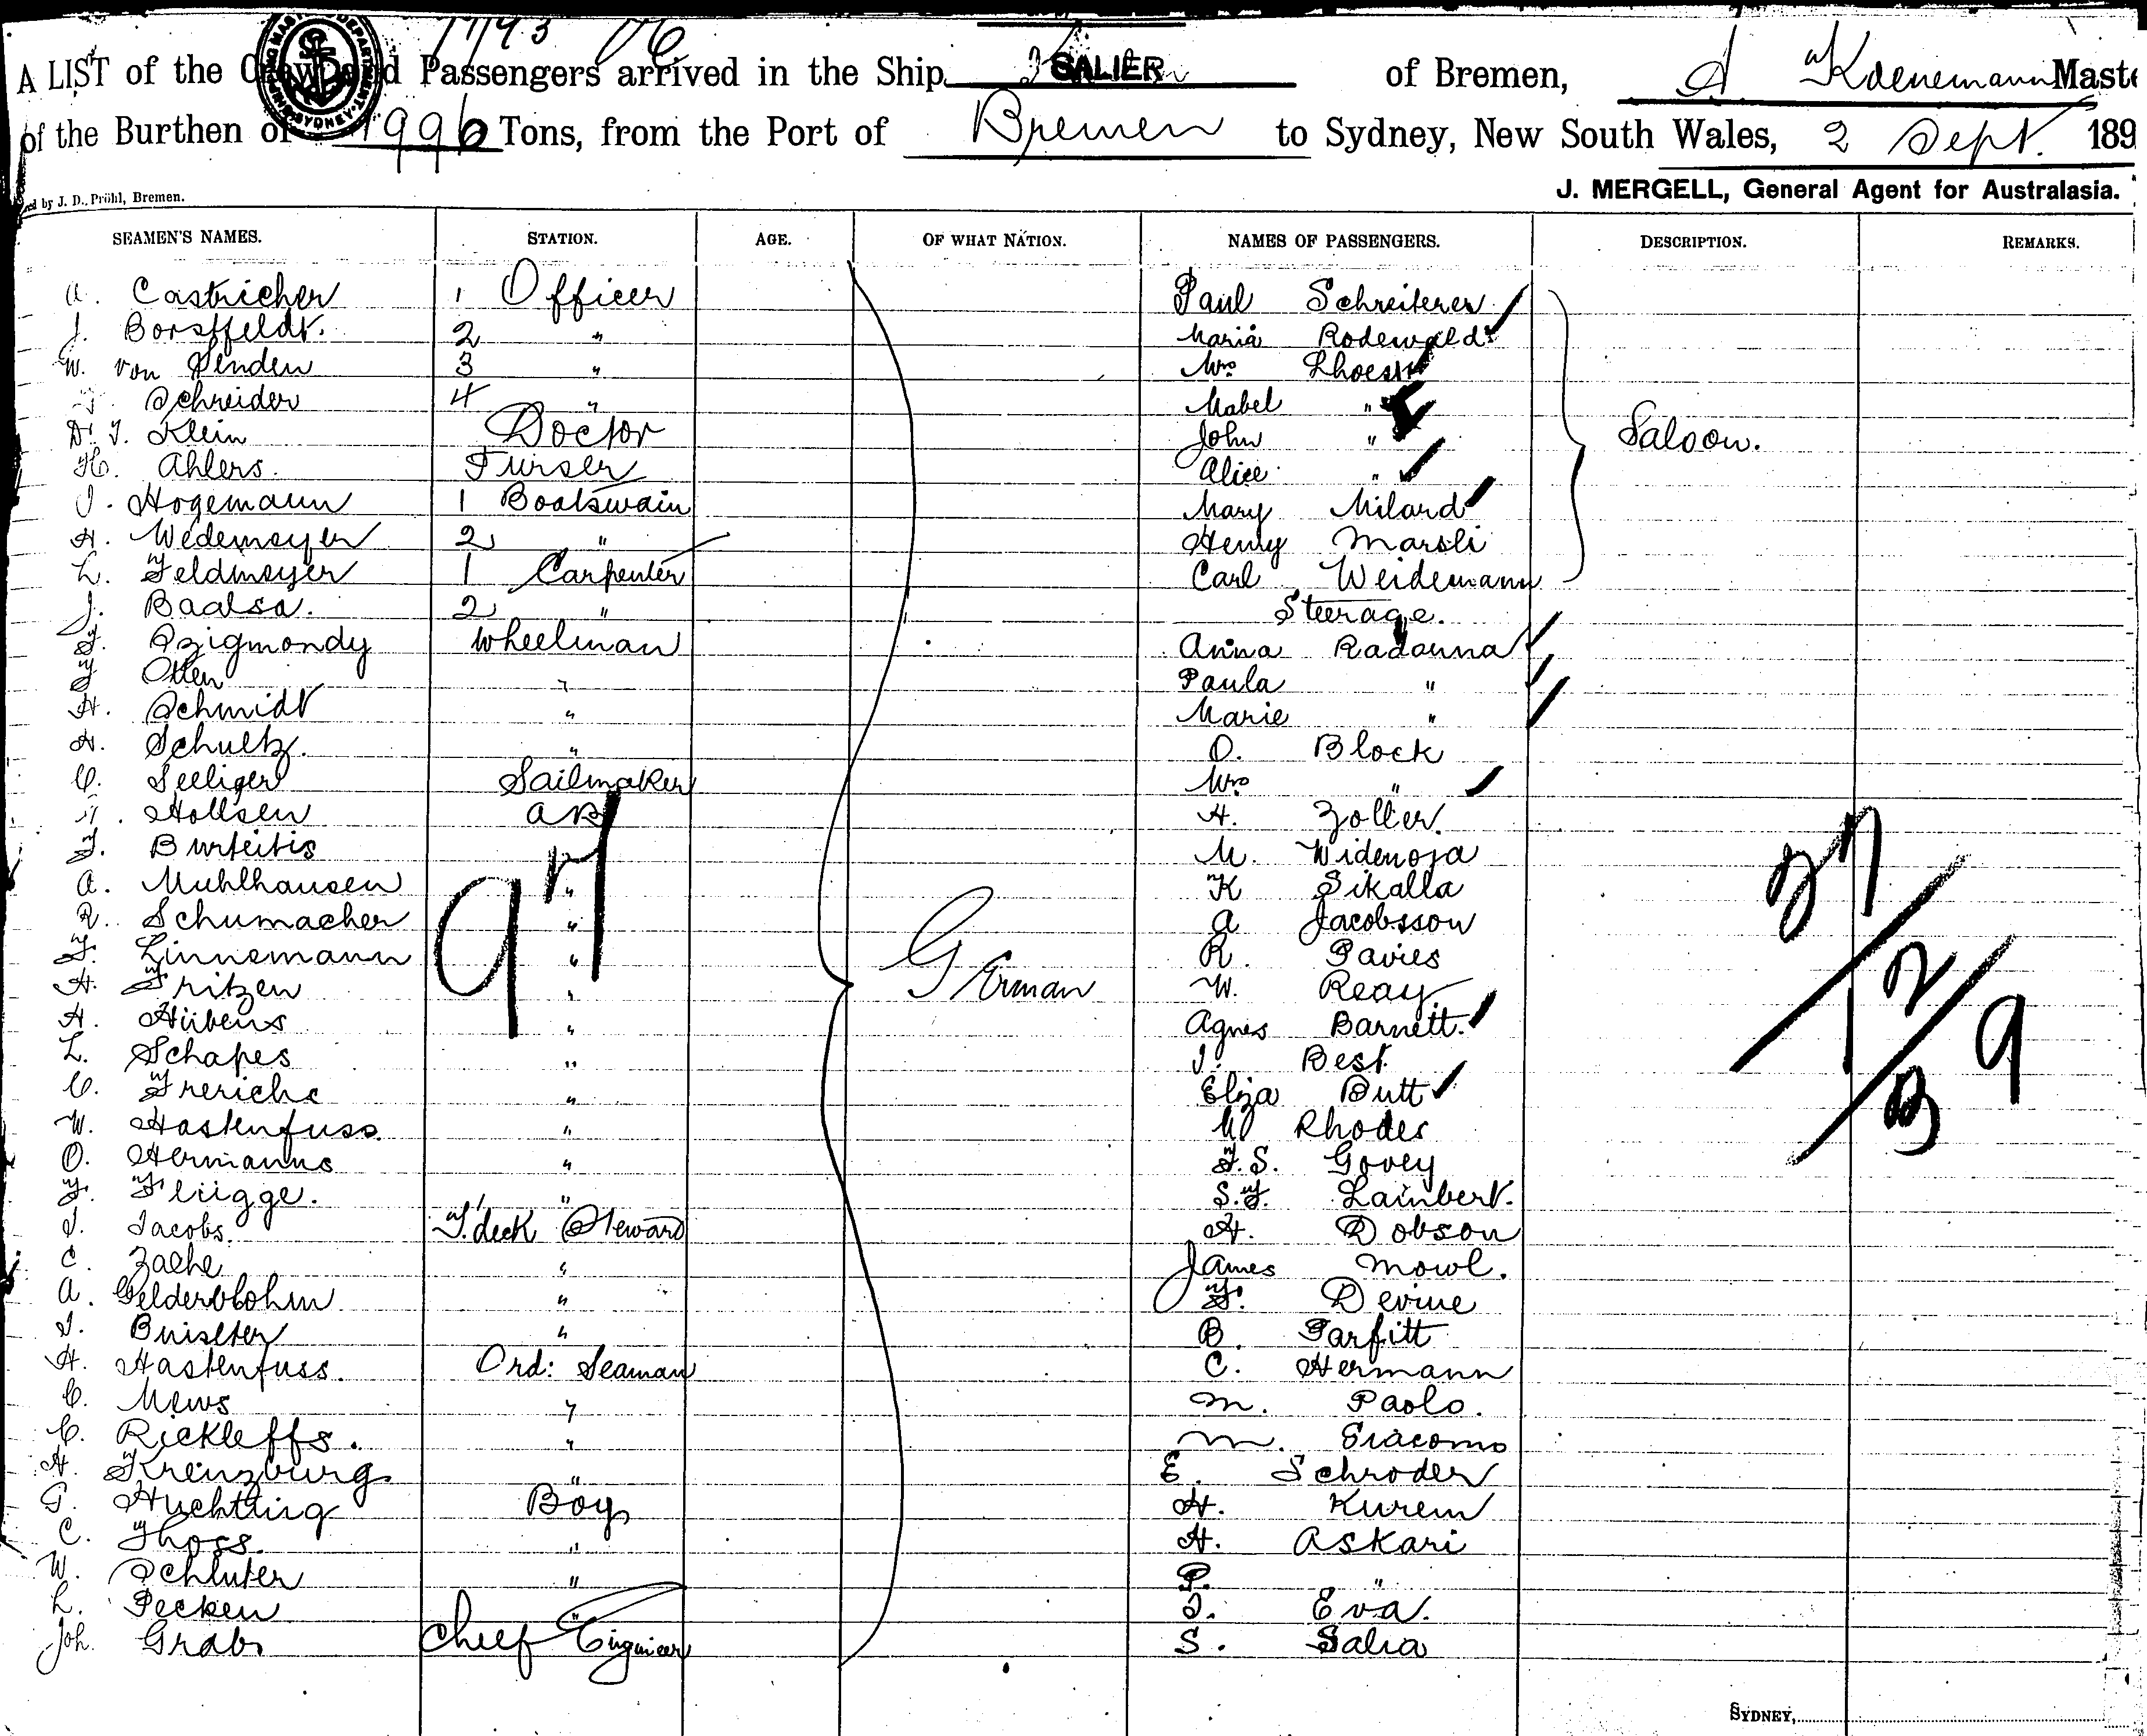 1793
A LIST of the Crew and Passengers arrived in the Ship SALIER of Bremen, A Koenemann Maste
of the Burthen of 1996 Tons, from the Port of Bremen to Sydney, New South Wales, 2 Sept. 189
ed by J. D. Pröhl, Bremen. J. MERGELL, General Agent for Australasia.
SEAMEN'S NAMES. STATION. AGE. OF WHAT NATION. NAMES OF PASSENGERS. DESCRIPTION. REMARKS.
A. Castricher 1 Officer Paul Schreiterer
J. Borstfeldt. 2 " Maria Rodewald
W. von Senden 3 " Mrs Lhoest
Schreider 4 " Mabel "
Dr. J. Klein Doctor John " Saloon.
H. Ahlers. Purser Alice "
J. Hogemann 1 Boatswain Mary Milard
H. Wedemeyer 2 " Henry Marsli
L. Feldmeyer 1 Carpenter Carl Weidemann
J. Baalsa. 2 " Steerage.
F. Szigmondy Wheelman Anna Radanna
F Otten " Paula "
H. Schmidt " Marie "
H. Schultz. " O. Block
C. Seeliger Sailmaker Mrs "
Hollsen AB H. Zoller.
F. Burteitis M. Widenoja
A. Muhlhausen " K Sikalla
R. Schumacher " A Jacobsson
F. Linnemann " R. Pavies
H. Fritzen " German W. Reay.
H. Hübens " Agnes Barnett.
L. Schapes " J. Best.
C. Frerichs " Eliza Butt
W. Hastenfuss. " W Rhodes
O. Hermanns " F. S. Govey
F. Flügge. " S. F. Lambert.
J. Jacobs. F. deck Steward H. Dobson
C. Zache " James Mowl.
A. Gelderblohm " F. Devine
J. Buiselter " B. Parfitt
H. Hastenfuss. Ord: Seaman C. Hermann
C. Mews " M. Paolo.
C. Rickleffs. " M. Giacomo
H. Krenzburg " E. Schroder
G. Huchtling Boy H. Kurem
C. Thoss. " H. Askari
W. Schluter " P. "
L. Pecken " J. Eva.
Joh. Grabs Chief Engineer S. Salia
97
27
12
39
SYDNEY,